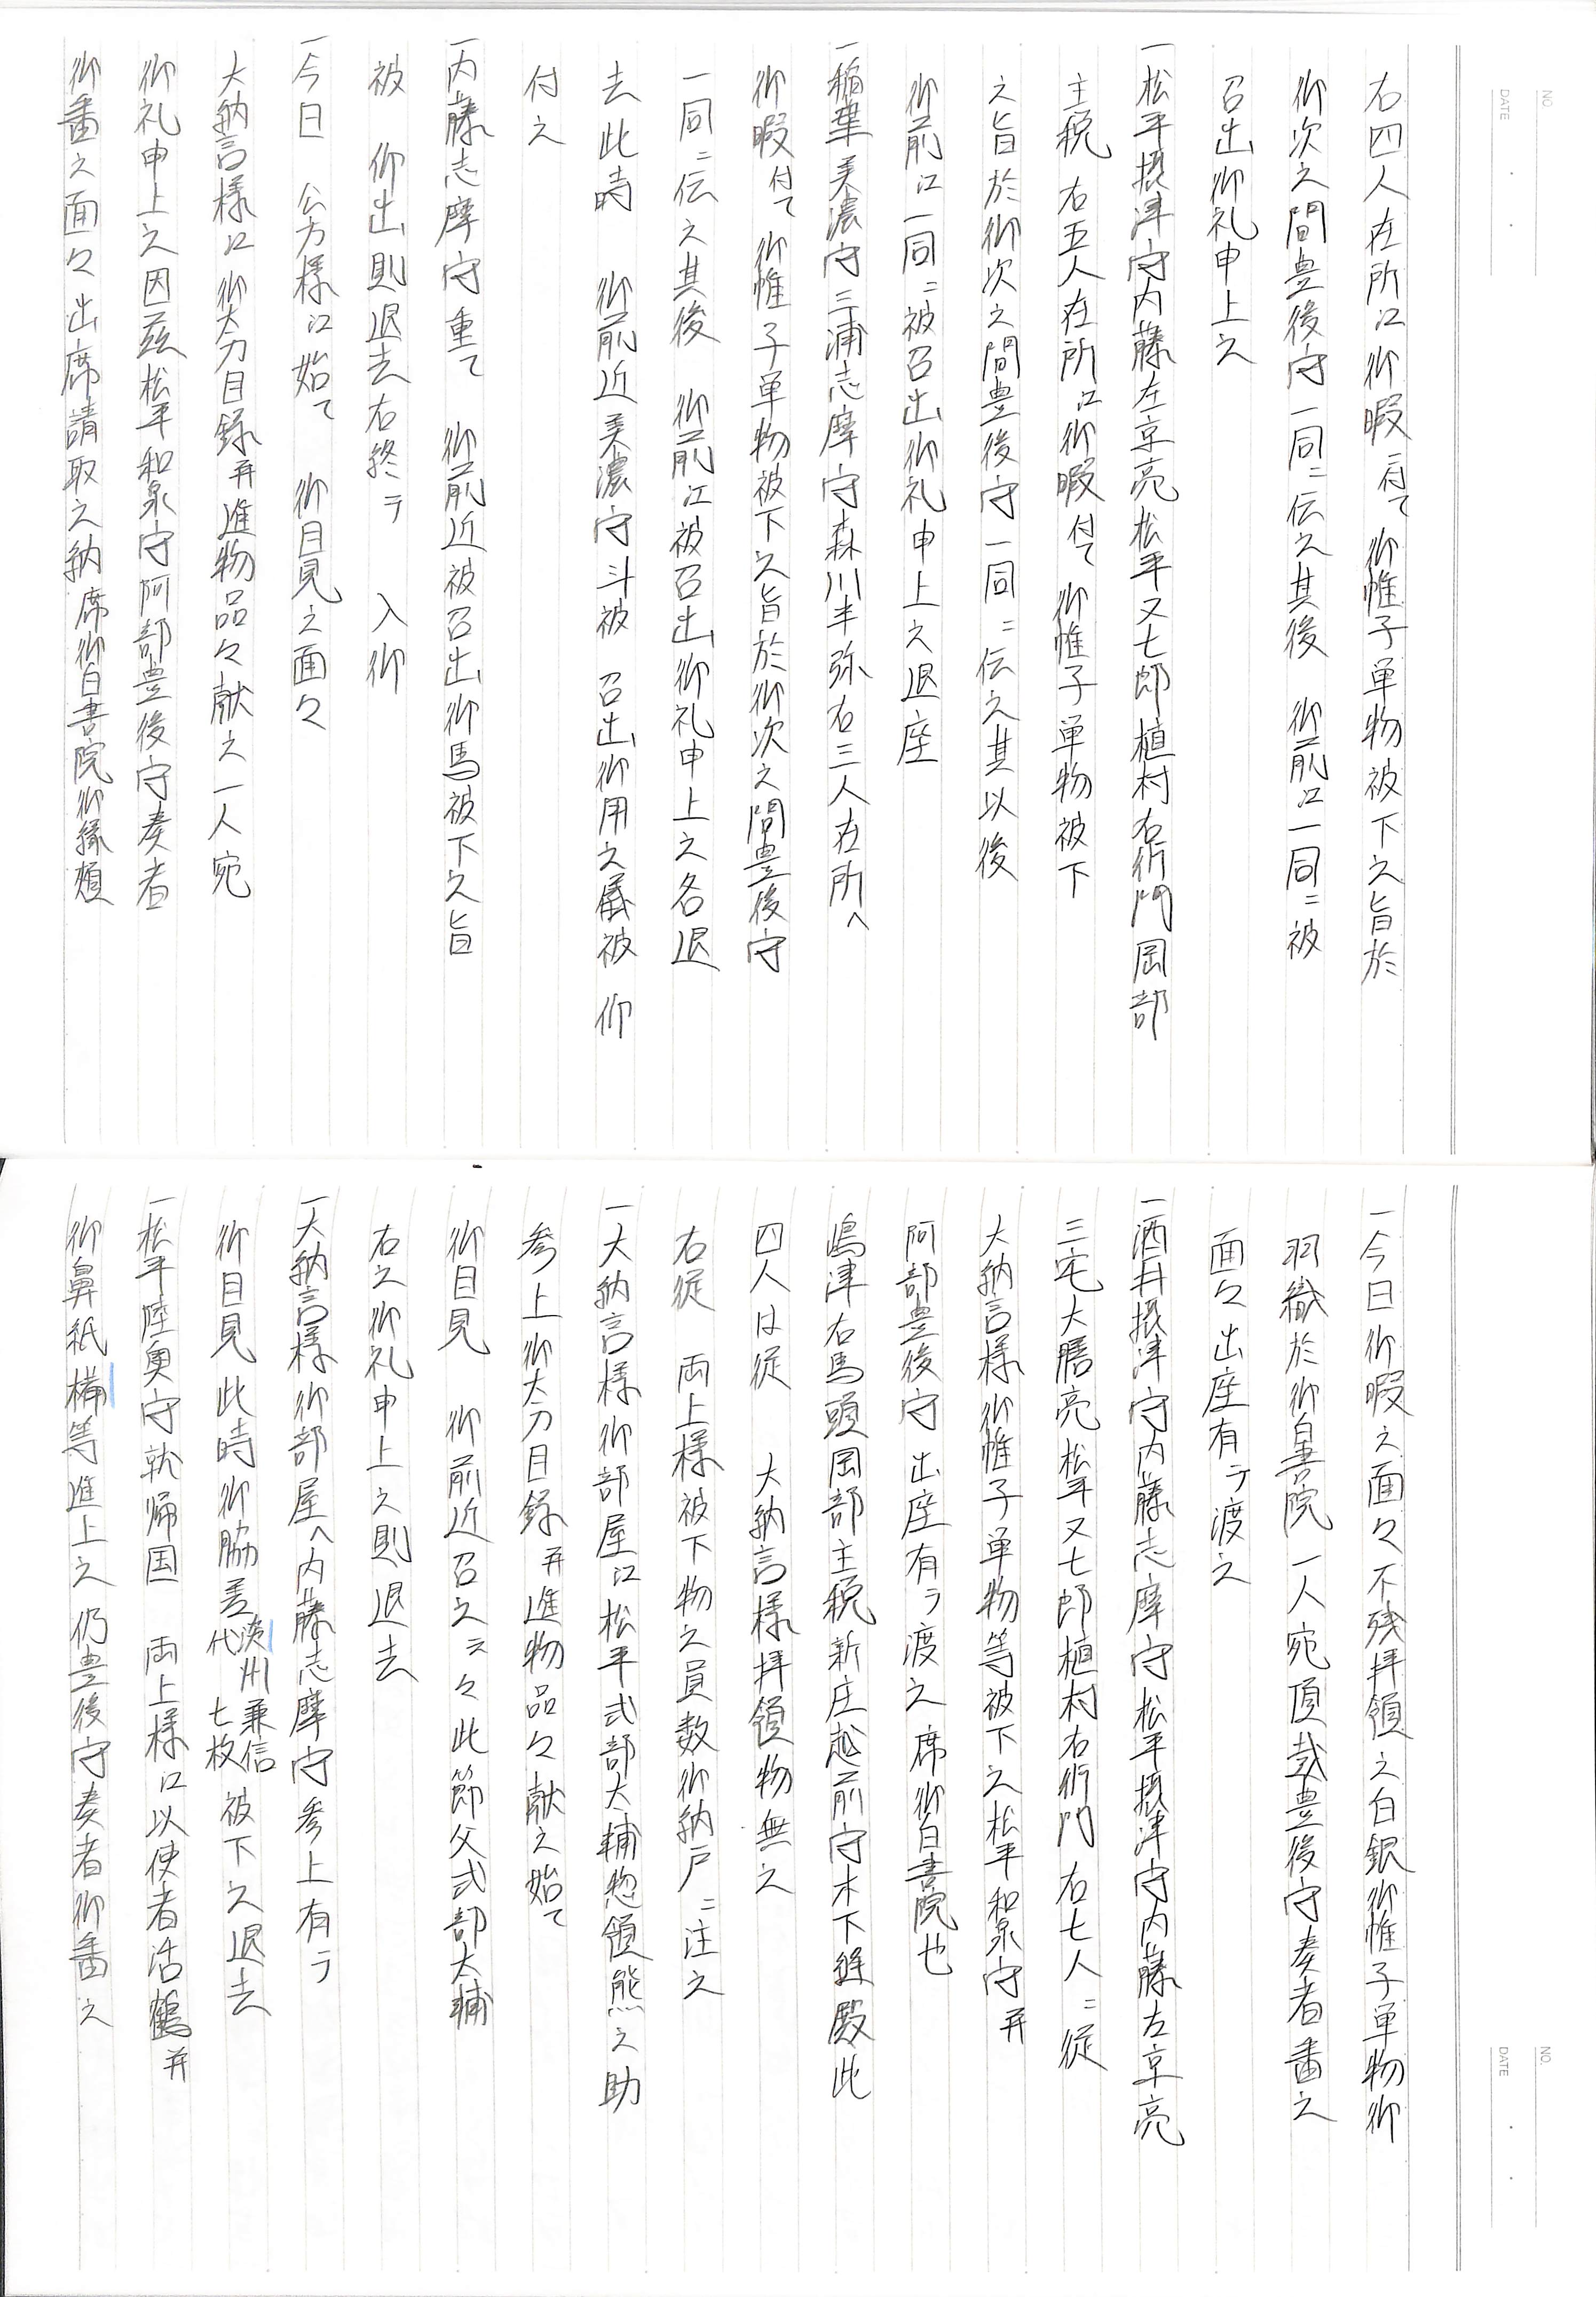 NO.
DATE
右四人在所江御暇ニ付て 御帷子単物被下之旨於
御次之間豊後守一同ニ伝之其後 御前江一同ニ被
召出御礼申上之
一松平摂津守内藤左京亮松平又七郎植村右衛門岡部
主税 右五人在所江御暇付て 御帷子単物被下
之旨於御次之間豊後守一同ニ伝之其以後
御前江一同ニ被召出御礼申上之退座
一稲葉美濃守三浦志摩守森川半弥右三人在所へ
御暇付て 御帷子単物被下之旨於御次之間豊後守
一同ニ伝之其後 御前江被召出御礼申上之各退
去此時 御前近美濃守斗被 召出御用之儀被 仰
付之
一内藤志摩守重て 御前近被召出御馬被下之旨
被 仰出則退去右終テ 入御
一今日 公方様江始て 御目見之面々
大納言様江御太刀目録并進物品々献之一人宛
御礼申上之因茲松平和泉守阿部豊後守奏者
御番之面々出席請取之納席御白書院御縁頬
NO.
DATE
一今日御暇之面々不残拝領之白銀御帷子単物御
羽織於御白書院一人宛頂戴豊後守奏者番之
面々出座有テ渡之
一酒井摂津守内藤志摩守松平摂津守内藤左京亮
三宅大膳亮松平又七郎植村右衛門 右七人ニ従
大納言様御帷子単物等被下之松平和泉守并
阿部豊後守 出座有テ渡之 席御白書院也
嶋津右馬頭岡部主税新庄越前守木下縫殿此
四人は従 大納言様拝領物無之
右従 両上様被下物之員数御納戸ニ注之
一大納言様御部屋江松平式部大輔惣領熊之助
参上御太刀目録并進物品々献之始て
御目見 御前近召之云々此節父式部大輔
右之御礼申上之則退去
一大納言様御部屋へ内藤志摩守参上有テ
御目見此時御脇差濃州兼信代七枚被下之退去
一松平陸奥守就帰国 両上様江以使者活鶴并
御鼻紙構等進上之仍豊後守奏者御番之